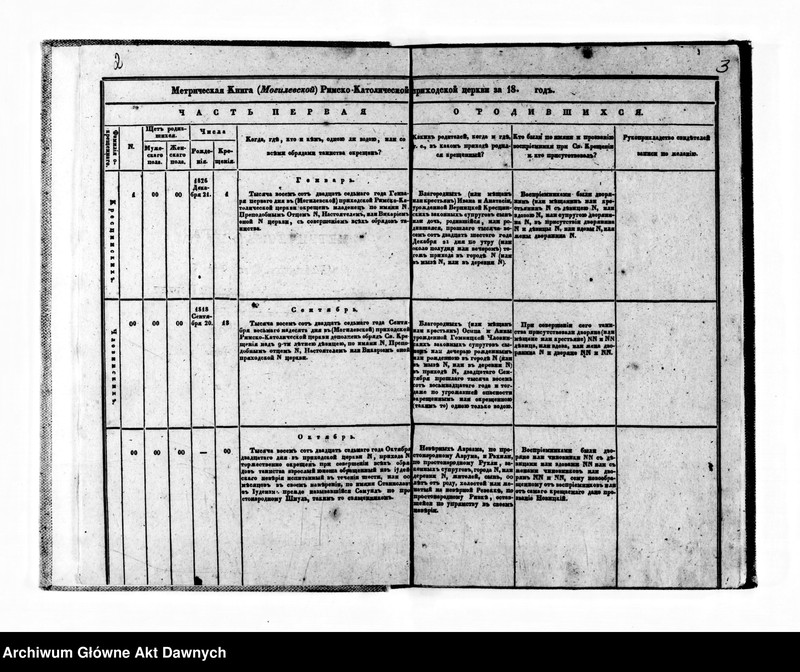 2
3
Метрическая Книга (Могилевской) Римско-Католической приходской церкви за 18. годъ.
ЧАСТЬ ПЕРВАЯ О РОДИВШИХСЯ.
N.
Щетъ родив-
шихся.
Муже-
скаго
пола.
Жен-
скаго
пола.
Числа
Рожде-
нія.
Кре-
щенія.
Когда, гдѣ, кто и кѣмъ, одною ли водою, или со
всѣми обрядами таинства окрещенъ?
Какихъ родителей, когда и гдѣ,
т. е., въ какомъ приходѣ родил-
ся крещенный?
Кто были по имени и прозванію
воспріемники при Св. Крещеніи
и кто присутствовалъ?
Рукоприкладство свидѣтелей
записи по желанію.
Генварь.
1
00
00
1826
Дека-
бря 21.
1
Тысяча восемь сотъ двадцать седьмаго года Генва-
ря перваго дня въ (Могилевской) приходской Римско-Ка-
толической церкви окрещенъ младенецъ по имени N.
Преподобнымъ Отцемъ N, Настоятелемъ, или Викаріемъ
оной N церкви, съ совершеніемъ всѣхъ обрядовъ та-
инства.
Благородныхъ (или мѣщанъ
или крестьянъ) Ивана и Анастасіи,
урожденной Верницкой Крещин-
скихъ законныхъ супруговъ сынъ
или дочь, родившійся, или ро-
дившаяся, прошлаго тысяча во-
семь сотъ двадцать шестаго года
Декабря 21 дня по утру (или
около полудня или вечеромъ) то-
гожъ прихода въ городѣ N (или
въ мызѣ N, или въ деревни N).
Воспріемниками были дворя-
нинъ (или мѣщанинъ или кре-
стьянинъ N съ дѣвицею N, или
вдовою N, или супругою дворяни-
на N, въ присутствіи дворянина
N и дѣвицы N, или вдовы N, или
жены дворянина N.
Сентябрь.
00
00
00
1818
Сентя-
бря 20.
18
Тысяча восемь сотъ двадцать седьмаго года Сентя-
бря восьмаго надесять дня въ (Могилевской) приходской
Римско-Католической церкви дополненъ обрядъ Св. Кре-
щенія надъ 9-ти лѣтнею дѣвицею, по имени N, Препо-
добнымъ отцемъ N, Настоятелемъ или Викаріемъ оной
приходской N церкви.
Благородныхъ (или мѣщанъ
или крестьянъ) Осипа и Анны
урожденной Гомницкой Чловин-
скихъ законныхъ супруговъ сы-
номъ или дочерью рожденнымъ
или рожденною въ городѣ N (или
въ мызѣ N, или въ деревни N)
въ приходѣ N, двадцатаго Сен-
тября прошлаго тысяча восемь
сотъ восьмнадцатаго года и тог-
даже по угрожавшей опасности
окрещеннымъ или окрещенною
(такимъ то) одною только водою.
При совершеніи сего таин-
ства присутствовали дворяне (или
мѣщане или крестьяне) NN и NN
дѣвица, или вдова, или жена дво-
рянина N и дворяне NN и NN.
Октябрь.
00
00
00
—
00
Тысяча восемь сотъ двадцать седьмаго года Октября
двадцатаго дня въ приходской церкви N, прихода N
торжественно окрещенъ при совершеніи всѣхъ обря-
довъ таинства взрослый юноша обращенный изъ Іудей-
скаго невѣрія испытанный въ теченіи шести, или 00
мѣсяцевъ въ своемъ намѣреніи, по имени Станиславъ
въ Іудеяхъ прежде называвшійся Самуилъ по про-
стонародному Шмуль, такимъ то священникомъ.
Невѣрныхъ Авраама, по про-
стонародному Аврума, и Рахили,
по простонародному Рухли, за-
конныхъ супруговъ, города N, или
деревни N, жителей, сынъ, 00
лѣтъ отъ роду, холостой или же-
натый на невѣрной Ревеккѣ, по
простонародному Ривкѣ, остав-
шейся по упрямству въ своемъ
невѣріи.
Воспріемниками были дво-
ряне или чиновники NN съ дѣ-
вицами или вдовами NN или съ
женами чиновниковъ или дво-
рянъ NN и NN, сему новообра-
щенному отъ воспріемниковъ или
отъ самаго крещеннаго дано про-
званіе Новицкій.
Archiwum Główne Akt Dawnych